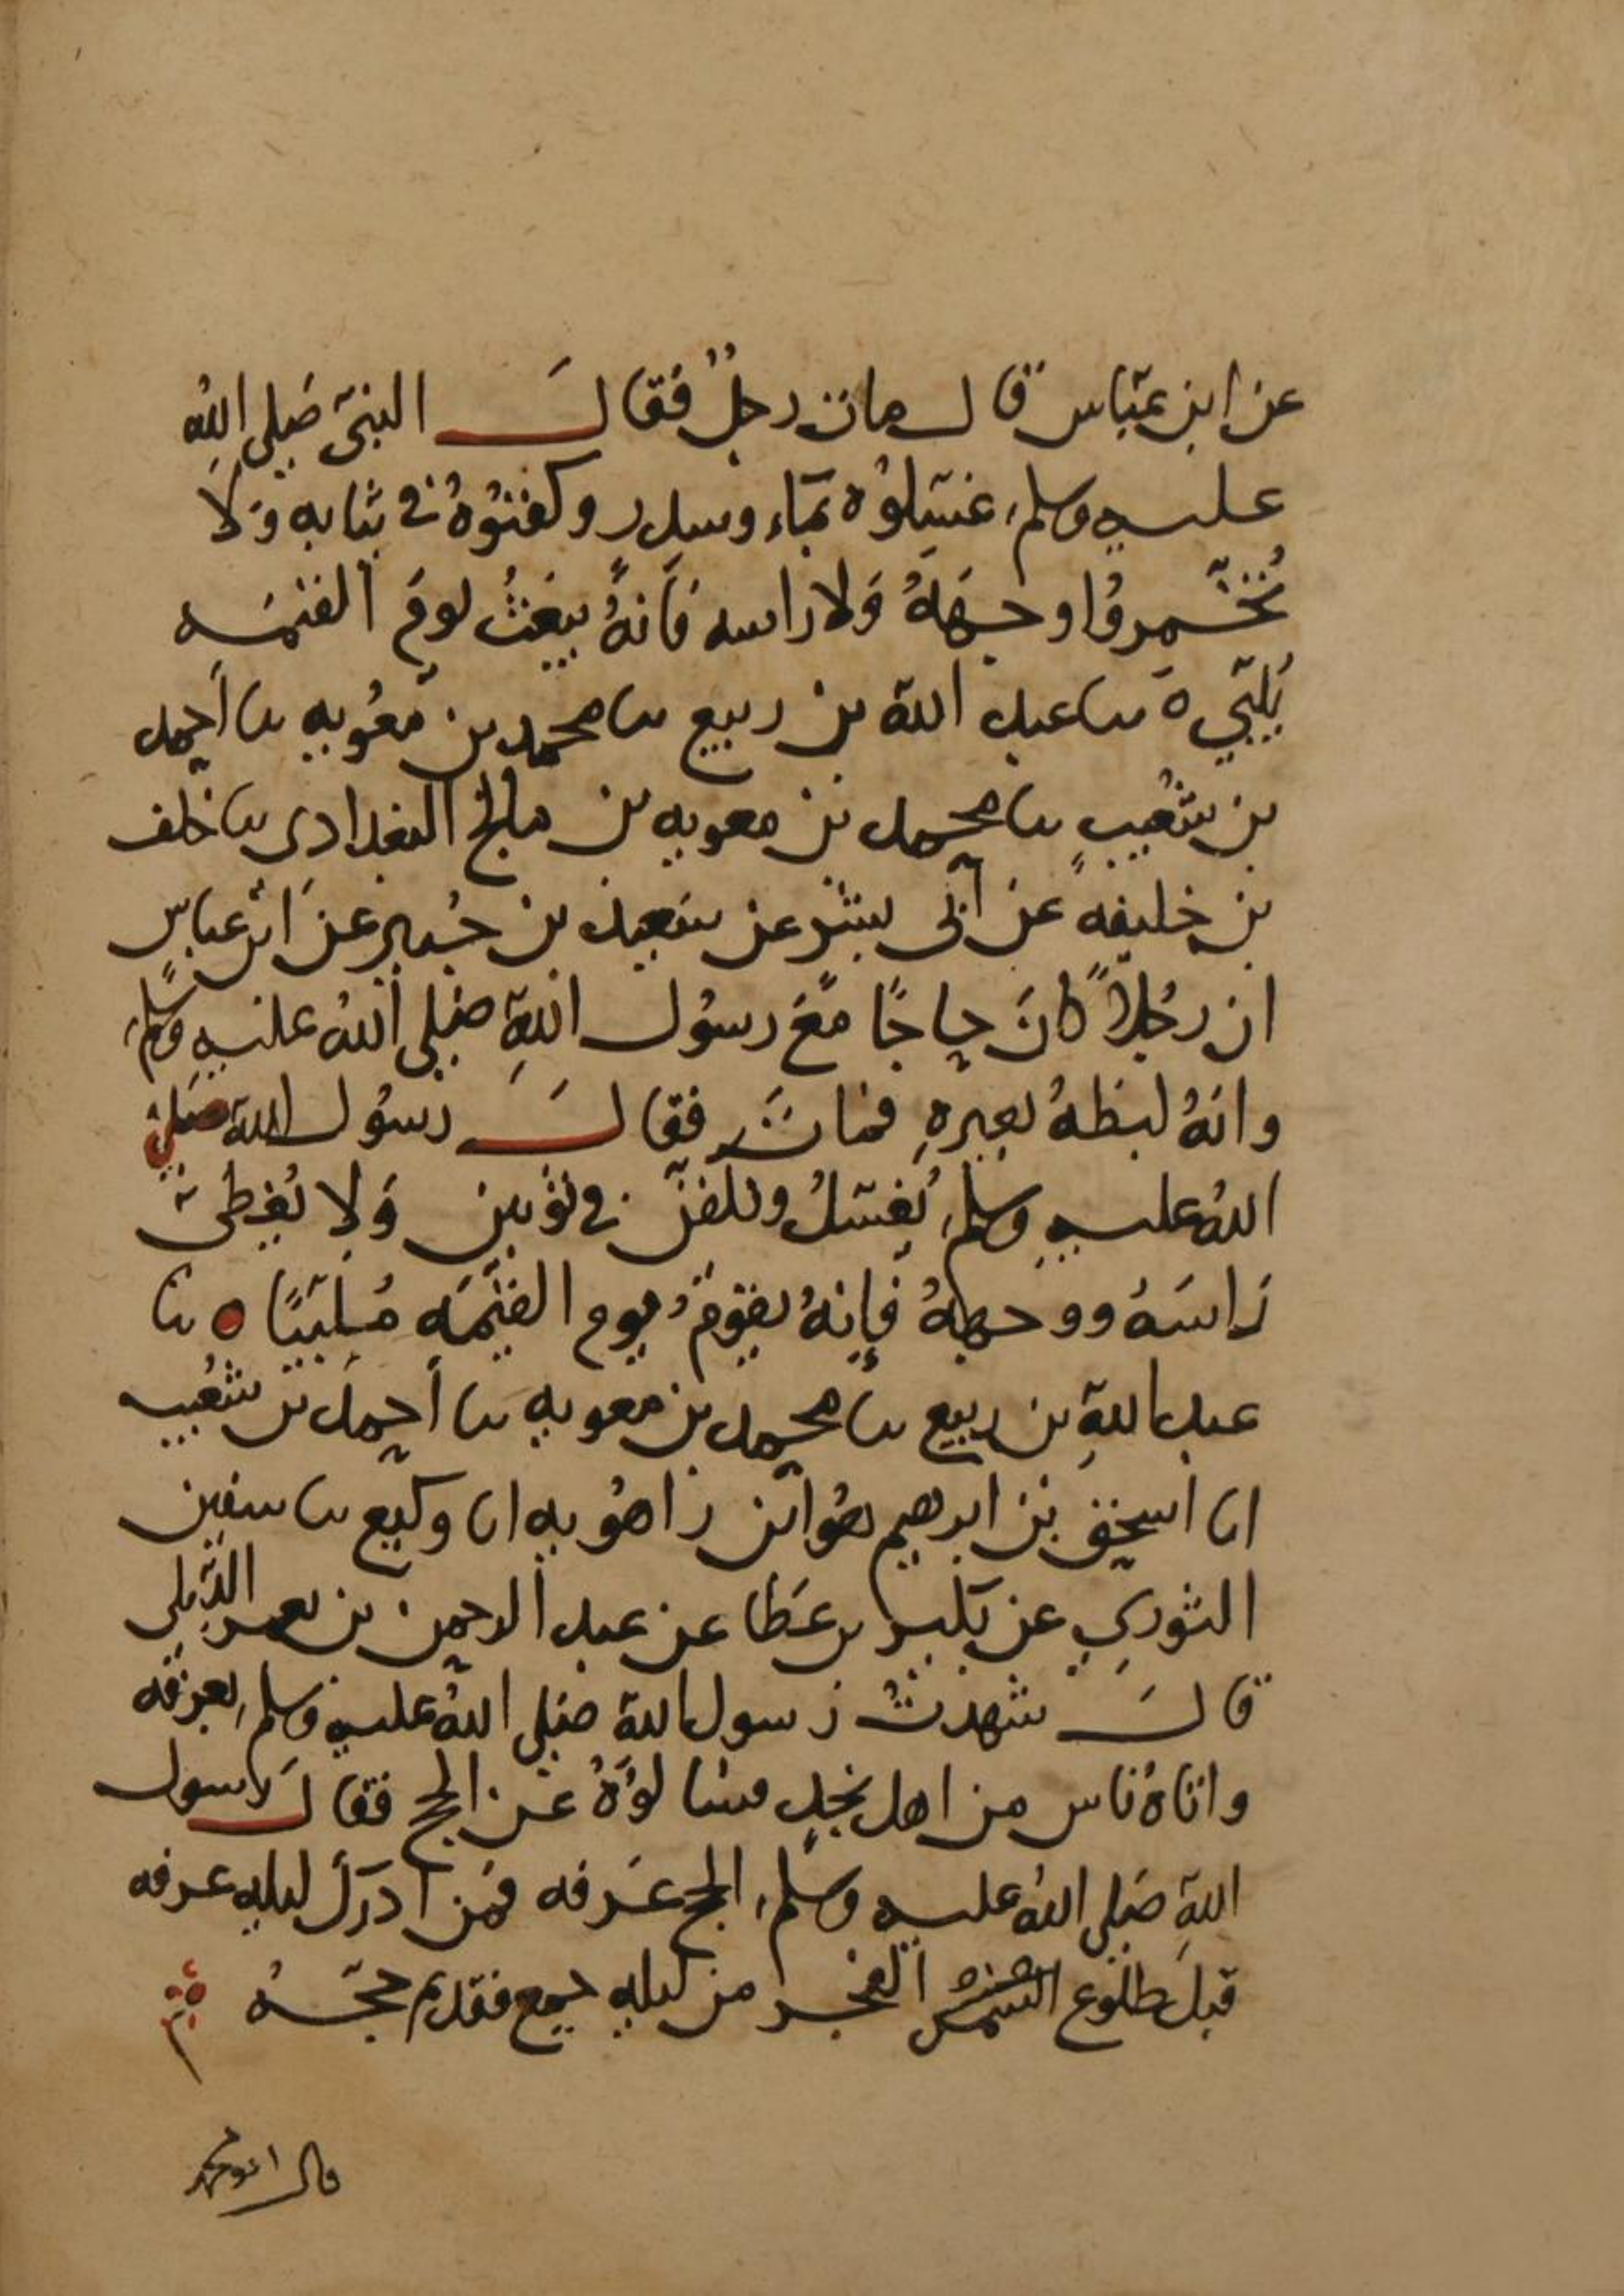 عن ابن عباس قال مات رجلٌ فقالَ النبى صلى اللهُ
عليه وسلم، غسلوُه بماء وسدر وكفنوُهُ في ثيابه وَلَا
تُخمروُا وجهَهُ وَلا راسه فَانهُ يبعَثُ يومَ القيمه
يُلبّي ه ثنا عبد الله بن ربيع ثنا محمد بن معوُيه ثنا أحمد
بن شعُيب ثنا محمد بن معويه بن مالج البغدادى ثنا خلف
بن خليفه عن أبى بشر عن سَعيد بن جُبير عن ابن عباس
ان رجُلاً كانَ حاجًا معَ رسوُل اللهِ صلى اللهُ عليه وسلم،
وانهُ لبظهُ بعيرهِ فمات فقالَ رسوُل الله صلى
اللهُ عليه وسلم، يُغسَلُ ويكفن في ثوبين وَلا يُغطى
رَاسَهُ ووجههُ فإنهُ يقوُم يوم القيمَه مُلبيًا ه ثنا
عبد اللهِ بن ربيع ثنا محمد بن معويه ثنا أحمد بن شعُيب
انا اسحق بن ابرهيم هوُ ابن راهوُيه انا وكيع ثنا سفين
الثوري عن بكير بن عَطا عن عبد الرحمن بن يعمر الديلى
قالَ شهدتُ رسول الله صلى اللهُ عليه وسلم، بعرفه
واتاهُ ناس من اهل نجد فسالوُهُ عن الحج فقالَ رسول
اللهِ صَلى اللهُ عليه وسلم، الحج عَرفه فمَن أدرك ليله عرفه
قبلَ طلوُع الشمس الفجر من ليله جمع فقد تم حجّهُ
قال ابو محمد